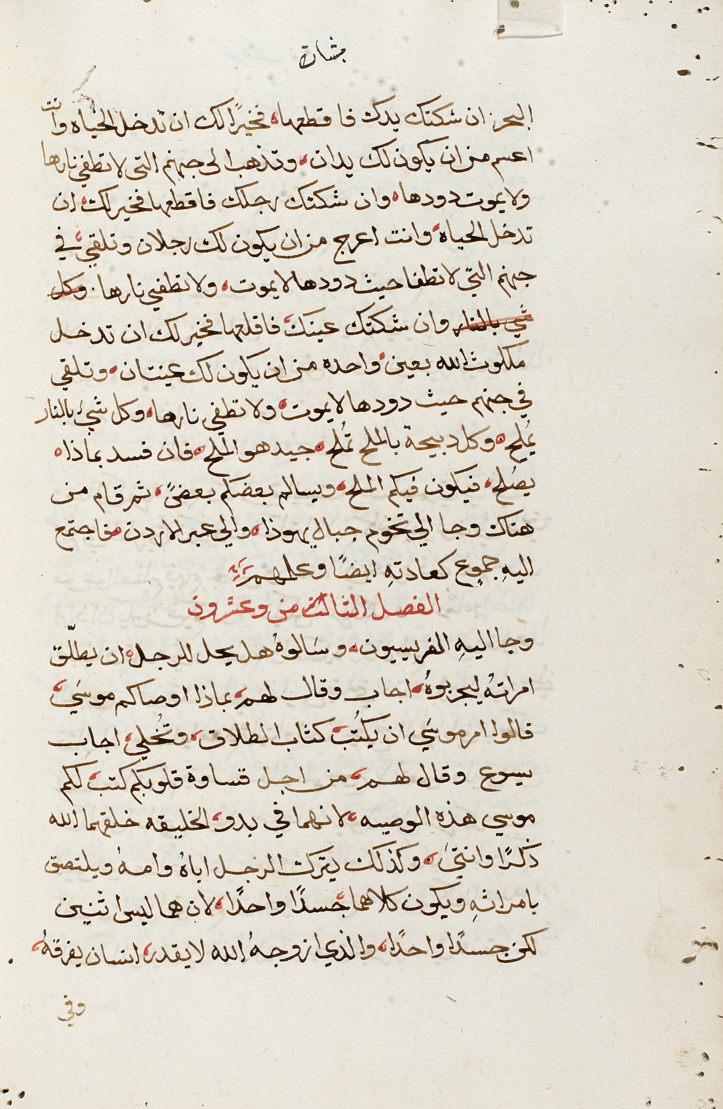 البحر. ان شكتك يدك فاقطعها، فخيرًا لك ان تدخل الحياه وانت
اعسم من ان يكون لك يدان، وتذهب الى جهنم التى لا تطفي نارها
ولا يموت دودها، وان شكتك رجلك فاقطعها فخير لك ان
تدخل الحياه، وانت اعرج من ان يكون لك رجلان وتلقي، في
جهنم التي لا تطفا حيث دودها لا يموت، ولا تطفي نارها. وكل
شي بالنار وان شكتك عينك، فاقلعها فخير لك ان تدخل
ملكوت الله بعين، واحده من ان يكون لك عينتان، وتلقي
في جهنم حيث دودها لا يموت، ولا تطفي نارها، وكل شيء بالنار
يُملح، وكل دبيحة بالملح تُملح، جيد هو الملح، فان فسد بماذا،
يصلح، فيكون فيكم الملح، ويسالم بعضكم بعضً، ثم قام من
هناك وجا الي تخوم جبال يهوذا، والي عبر الاردن، فاجتمع
اليه جموع كعادته ايضًا وعلمهم
الفصل الثالث من وعشرون
وجا اليهِ الفريسيون، وسَالوهُ هل يحل للرجل، ان يطلّق
امراتهُ ليجربوهُ، اجاب وقال لهم، بماذا اوصاكم موسَي،
قالوا امر موسَي ان يكتُبَ كتاب الطلاق، وتُخلي، اجاب
يسوع وقال لهم، من اجل قساوة قلوبكم كتب، لكم
موسي هذه الوصيه، لانهما في بدو، الخليقه خلقهما الله
ذكرًا وانثيَ، وكذلك يترك الرجل اباهُ وامهُ ويلتصق
بامراتهِ ويكون كلاهما، جسدًا واحدًا، لان هما ليس اثنين
لكن جسدًا واحدًا، والذي ازوجهُ الله لا يقدر، انسان يفرقهُ،
وفي